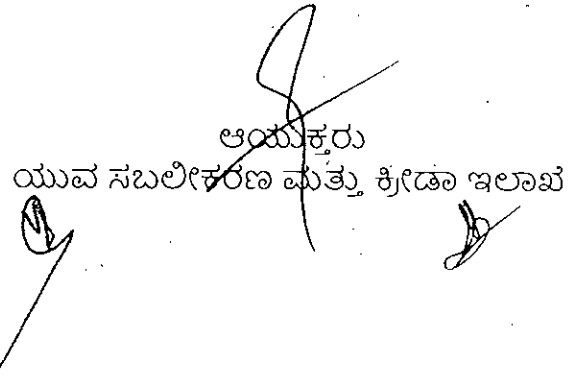 ಆಯುಕ್ತರು
ಯುವ ಸಬಲೀಕರಣ ಮತ್ತು ಕ್ರೀಡಾ ಇಲಾಖೆ